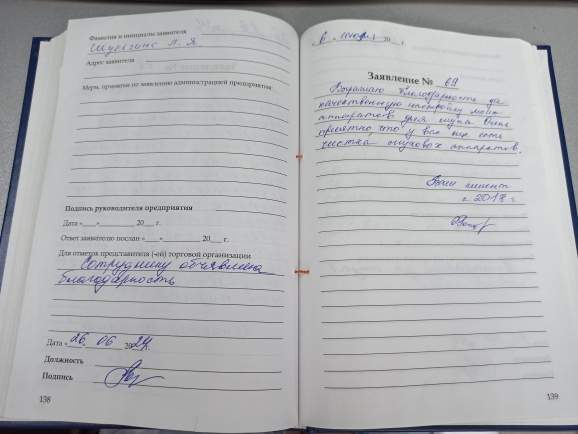 Фамилия и инициалы заявителя
Адрес заявителя
Меры, принятые по заявлению администрацией предприятия:
Подпись руководителя предприятия
Дата «    »    20    г.
Ответ заявителю послан «    »    20    г.
Для отметок представителя (-ей) торговой организации
Сотруднику объявлена
благодарность
Дата «26 06 2024.
Должность
Подпись
138
в
20    г.
Заявление № 69
Выражаю благодарность за
качественную настройку моих
аппаратов для слуха. Очень
приятно, что у вас еще есть
чистка слуховых аппаратов.
Ваш клиент
с 2018 г.
139